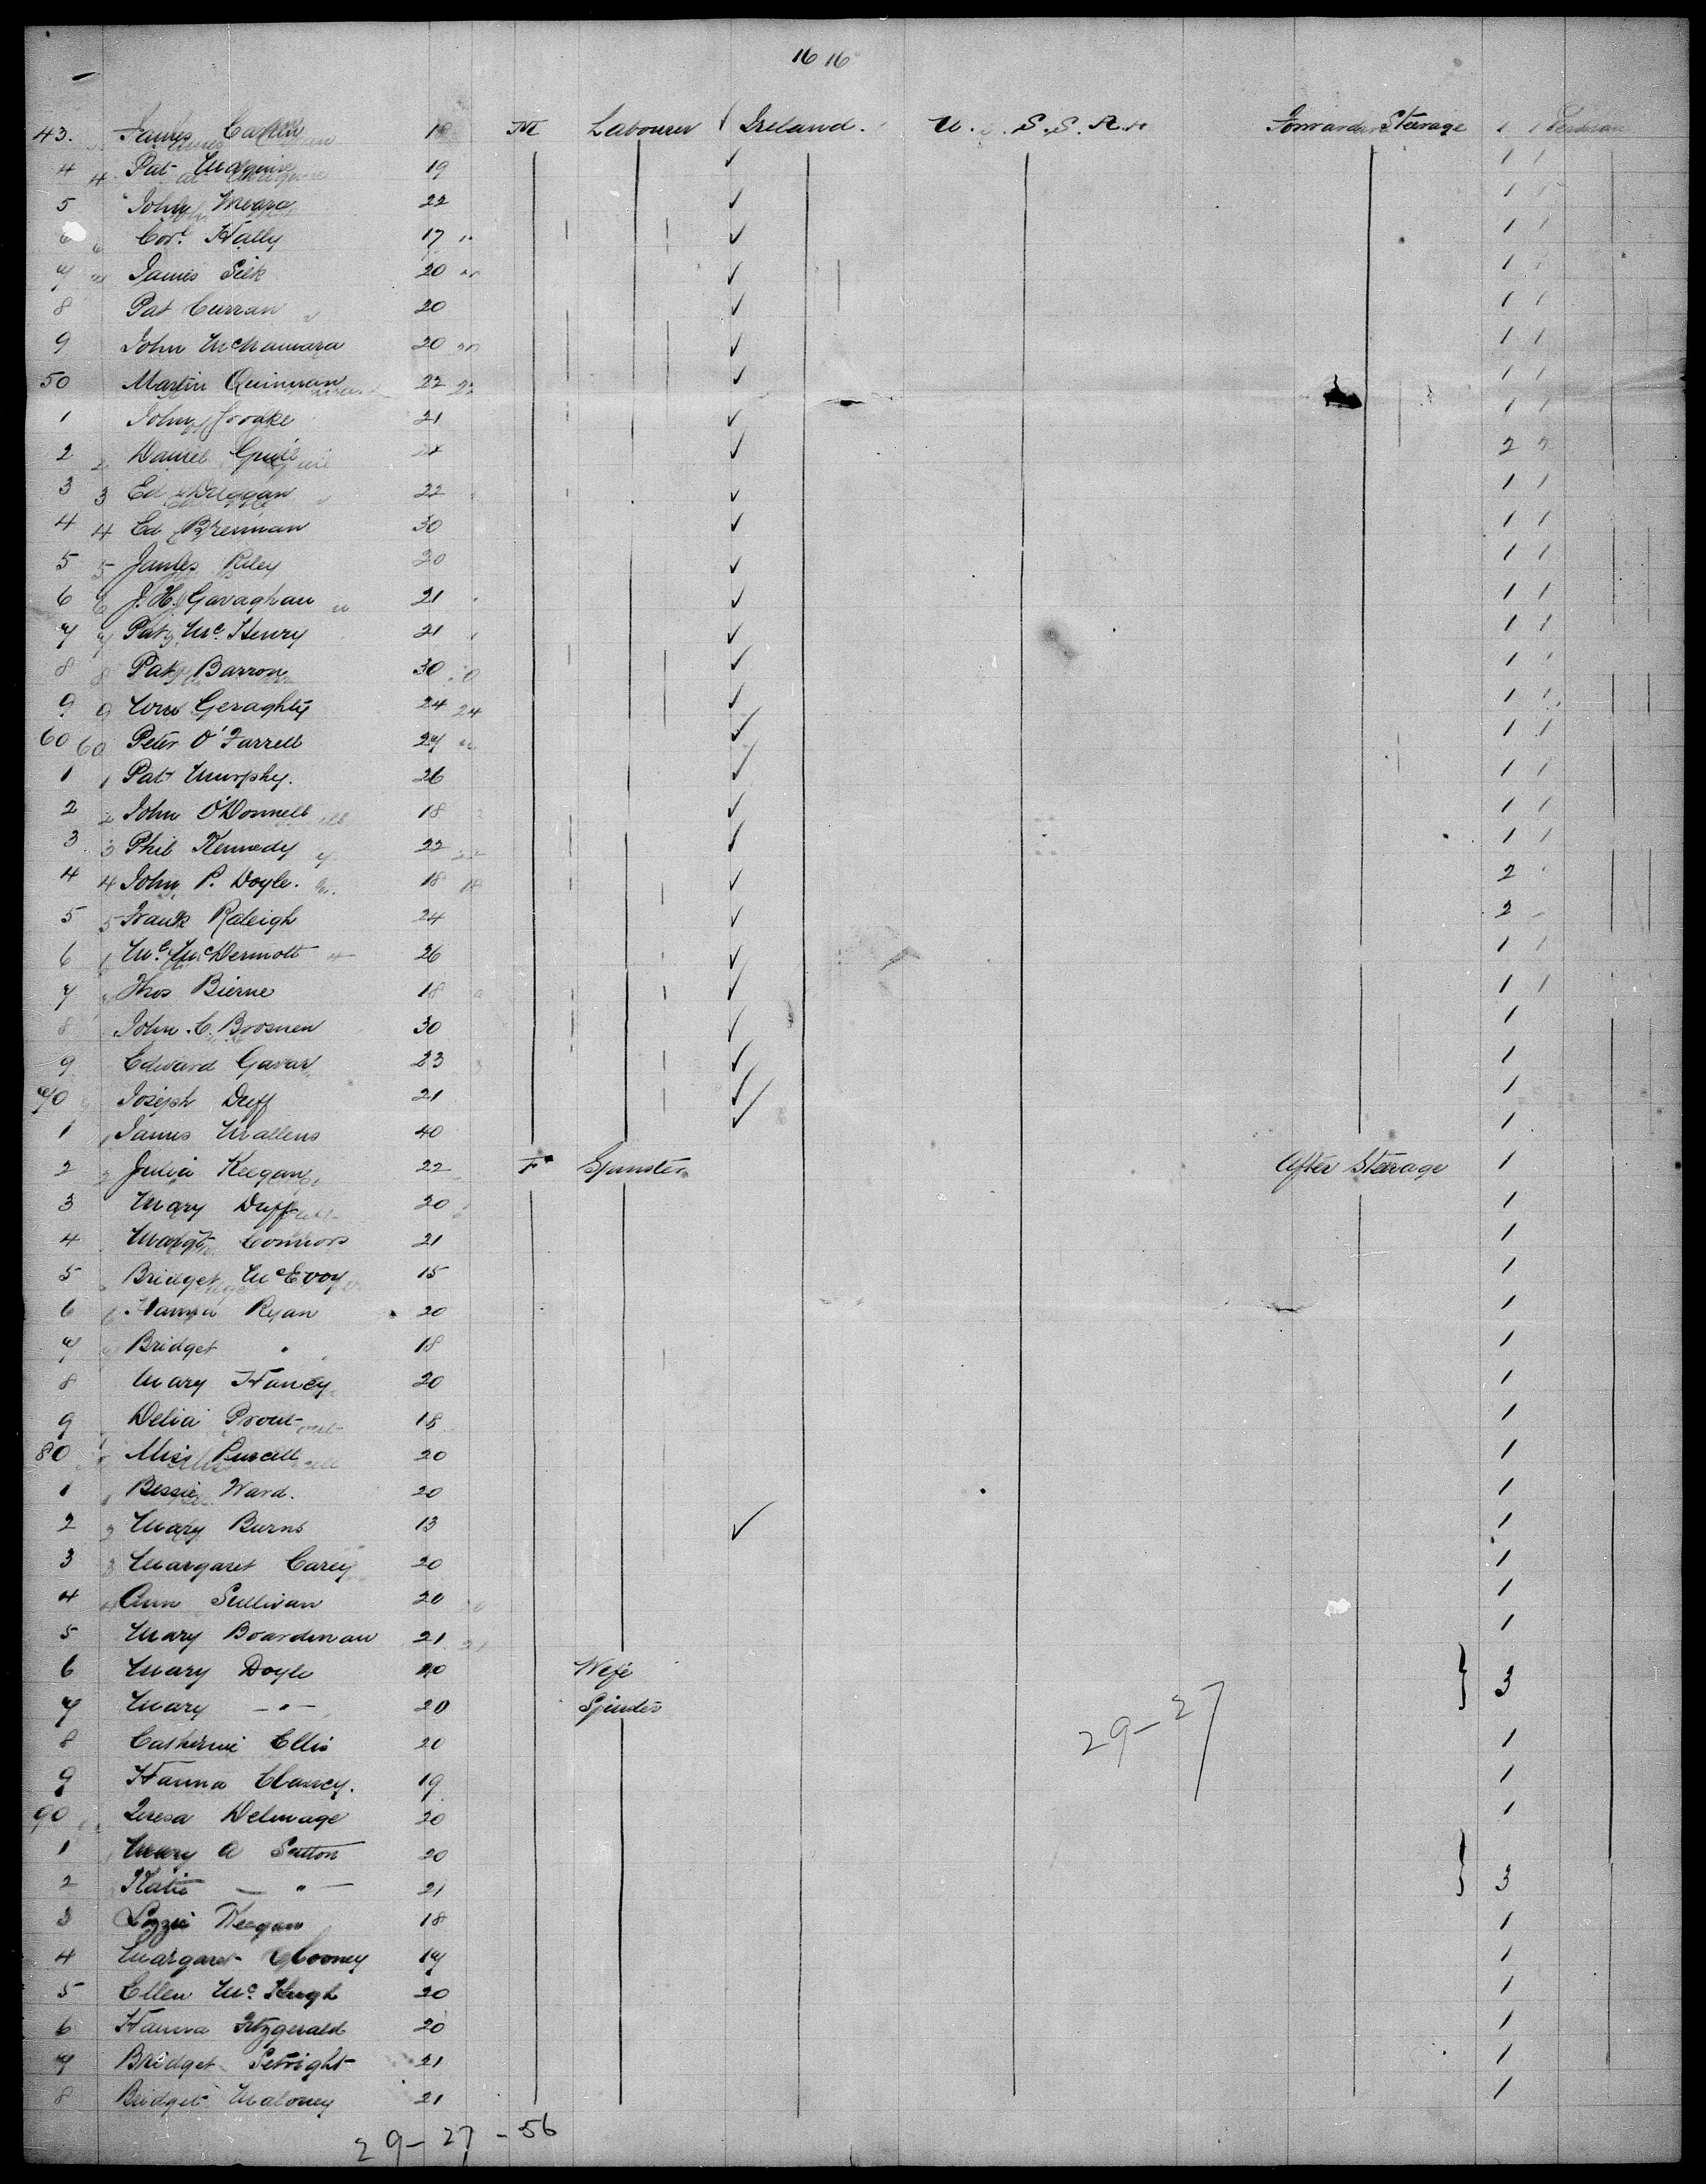 16 16
43. James 18 M Labourer Ireland. U.S.A. Forward Steerage 1 1
4 4 Pat Maguire 19 ✓ 1 1
5 John Meara 22 ✓ 1 1
6 Cor. Hally 17 ✓ 1 1
7 James Silk 20 ✓ 1 1
8 Pat Curran 20 ✓ 1 1
9 John McNamara 20 20 ✓ 1 1
50 Martin Quinnan 22 22 ✓ 1 1
1 John 21 ✓ 1 1
2 2 Daniel ✓ 2 2
3 3 Ed Duggan 22 ✓ 1 1
4 4 Ed Brennan 30 ✓ 1 1
5 5 James Riley 20 ✓ 1 1
6 6 J. H. Gavaghan 21 ✓ 1 1
7 7 Pat Mc. Henry 21 ✓ 1 1
8 8 Pat Barron 30 ✓ 1 1
9 9 Wm Geraghty 24 24 ✓ 1 1
60 60 Peter O'Farrell 27 ✓ 1 1
1 1 Pat Murphy. 26 ✓ 1 1
2 2 John O'Donnell 18 ✓ 1 1
3 3 Phil Kennedy 22 22 ✓ 1 1
4 4 John P. Doyle. 18 18 ✓ 2
5 5 Frank Raleigh 24 ✓ 2
6 6 Mc. McDermott 26 ✓ 1 1
7 Thos Bierne 18 ✓ 1 1
8 John C. Brosnen 30 ✓ 1
9 Edward Gavan 23 ✓ 1
70 Joseph Duff 21 ✓ 1
1 1 James Mallens 40 ✓ 1
2 2 Julia Keegan 22 F Spinster After Steerage 1
3 Mary Duff 20 1
4 Margt Connors 21 1
5 Bridget McEvoy 15 1
6 6 Hanna Ryan 20 1
7 Bridget " 18 1
8 Mary Hancy 20 1
9 Delia Prout 18 1
80 Miss Purcell 20 1
1 1 Bessie Ward. 20 1
2 2 Mary Burns 13 ✓ 1
3 3 Margaret Carey 20 1
4 4 Ann Sullivan 20 1
5 Mary Boardman 21 21 1
6 Mary Doyle 40 Wife } 3
7 Mary - " - 20 Spinster
8 Catherine Ellis 20 29-27 1
9 Hanna Clancy. 19 1
90 Teresa Delmage 20 1
1 Mary A Sutton 20 }
2 Katie - " - 21 3
3 Lizzie Keegan 18 1
4 Margaret 1
5 Ellen Mc. Hugh 20 1
6 Hanna Fitzgerald 20 1
7 Bridget Setright 21 1
8 Bridget Maloney 21 1
29-27-56